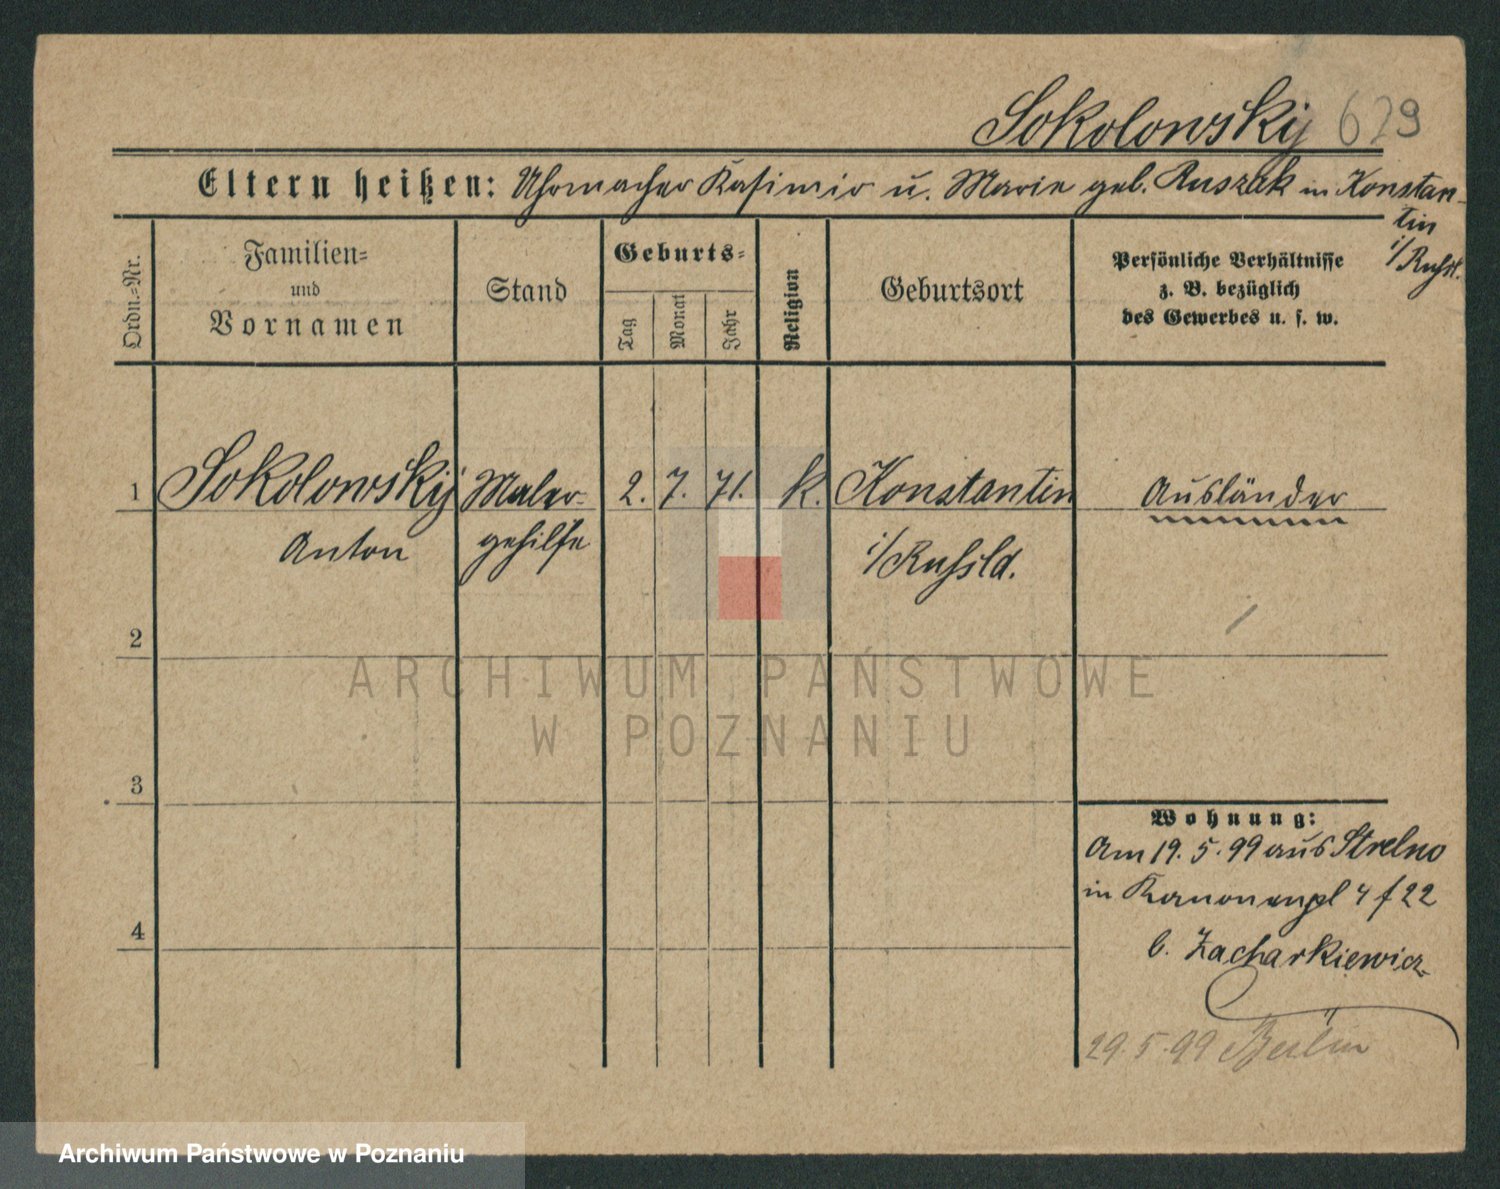 Sokolowskij 629
Eltern heißen: Uhrmacher Kasimir u. Marie geb. Ruszak in Konstan-
tin
i/Russl.
Ordn.=Nr.
Familien=
und
Vornamen
Stand
Geburts=
Tag
Monat
Jahr
Religion
Geburtsort
Persönliche Verhältnisse
z. B. bezüglich
des Gewerbes u. s. w.
1 Sokolowskij Maler= 2. 7. 71. k. Konstantin Ausländer
Anton gehilfe i/Russld.
2
ARCHIWUM PAŃSTWOWE
W POZNANIU
3
Wohnung:
Am 19. 5. 99 aus Strelno
in Kanonenpl 4 f 22
4
b. Zacharkiewicz
29. 5. 99 Berlin
Archiwum Państwowe w Poznaniu